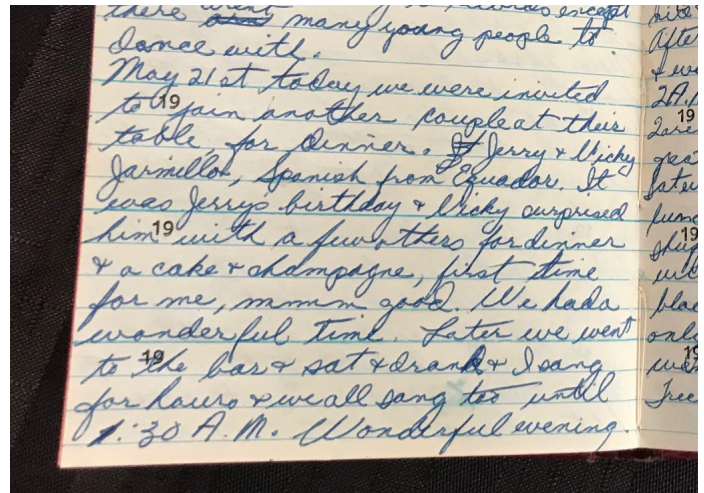 there many young people to
Dance with.
May 21st today we were invited
to join another couple at their
table, for dinner. Jerry & Vicky
Jarmillor, Spanish from Equador. It
was Jerrys birthday & Vicky surprised
him with a few others for dinner
& a cake & champagne, first time
for me, mmmm good. We had a
wonderful time. Later we went
to the bar & sat & drank & I sang
for hours & we all sang too until
1:30 A.M. Wonderful evening.
19
19
19
19
After
2 A.M
19
19
19